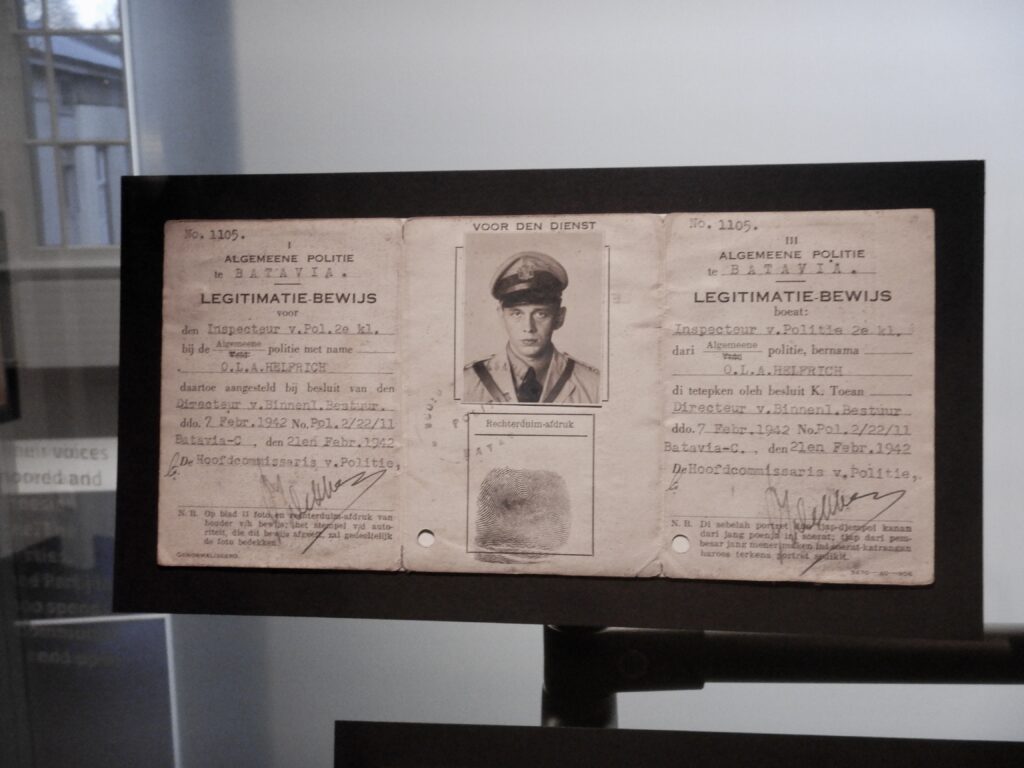 No. 1105.
I
ALGEMEENE POLITIE
te BATAVIA.
LEGITIMATIE-BEWIJS
voor
den Inspecteur v.Pol.2e kl.
bij de Algemeene Veld politie met name
O.L.A.HELFRICH
daartoe aangesteld bij besluit van den
Directeur v.Binnenl.Bestuur.
ddo. 7 Febr.1942 No.Pol.2/22/11
Batavia-C., den 21en Febr.1942
De Hoofdcommissaris v.Politie,
N. B. Op blad II foto en rechterduim-afdruk van
houder v/h bewijs; het stempel v/d auto-
riteit, die dit bewijs afgeeft, zal gedeeltelijk
de foto bedekken.
VOOR DEN DIENST
Rechterduim-afdruk
No. 1105.
III
ALGEMEENE POLITIE
te BATAVIA.
LEGITIMATIE-BEWIJS
boeat:
Inspecteur v.Politie 2e kl.
dari Algemeene Veld politie, bernama
O.L.A.HELFRICH
di tetepken oleh besluit K. Toean
Directeur v.Binnenl.Bestuur
ddo. 7 Febr.1942 No.Pol.2/22/11
Batavia-C., den 21en Febr.1942
De Hoofdcommissaris v.Politie,
N. B. Di sebelah portret dan tjap-djempol kanan
dari jang poenja ini soerat; tjap dari pem-
besar jang menerimaken ini soerat-katrangan
haroes terkena portret sedikit.
voices
and